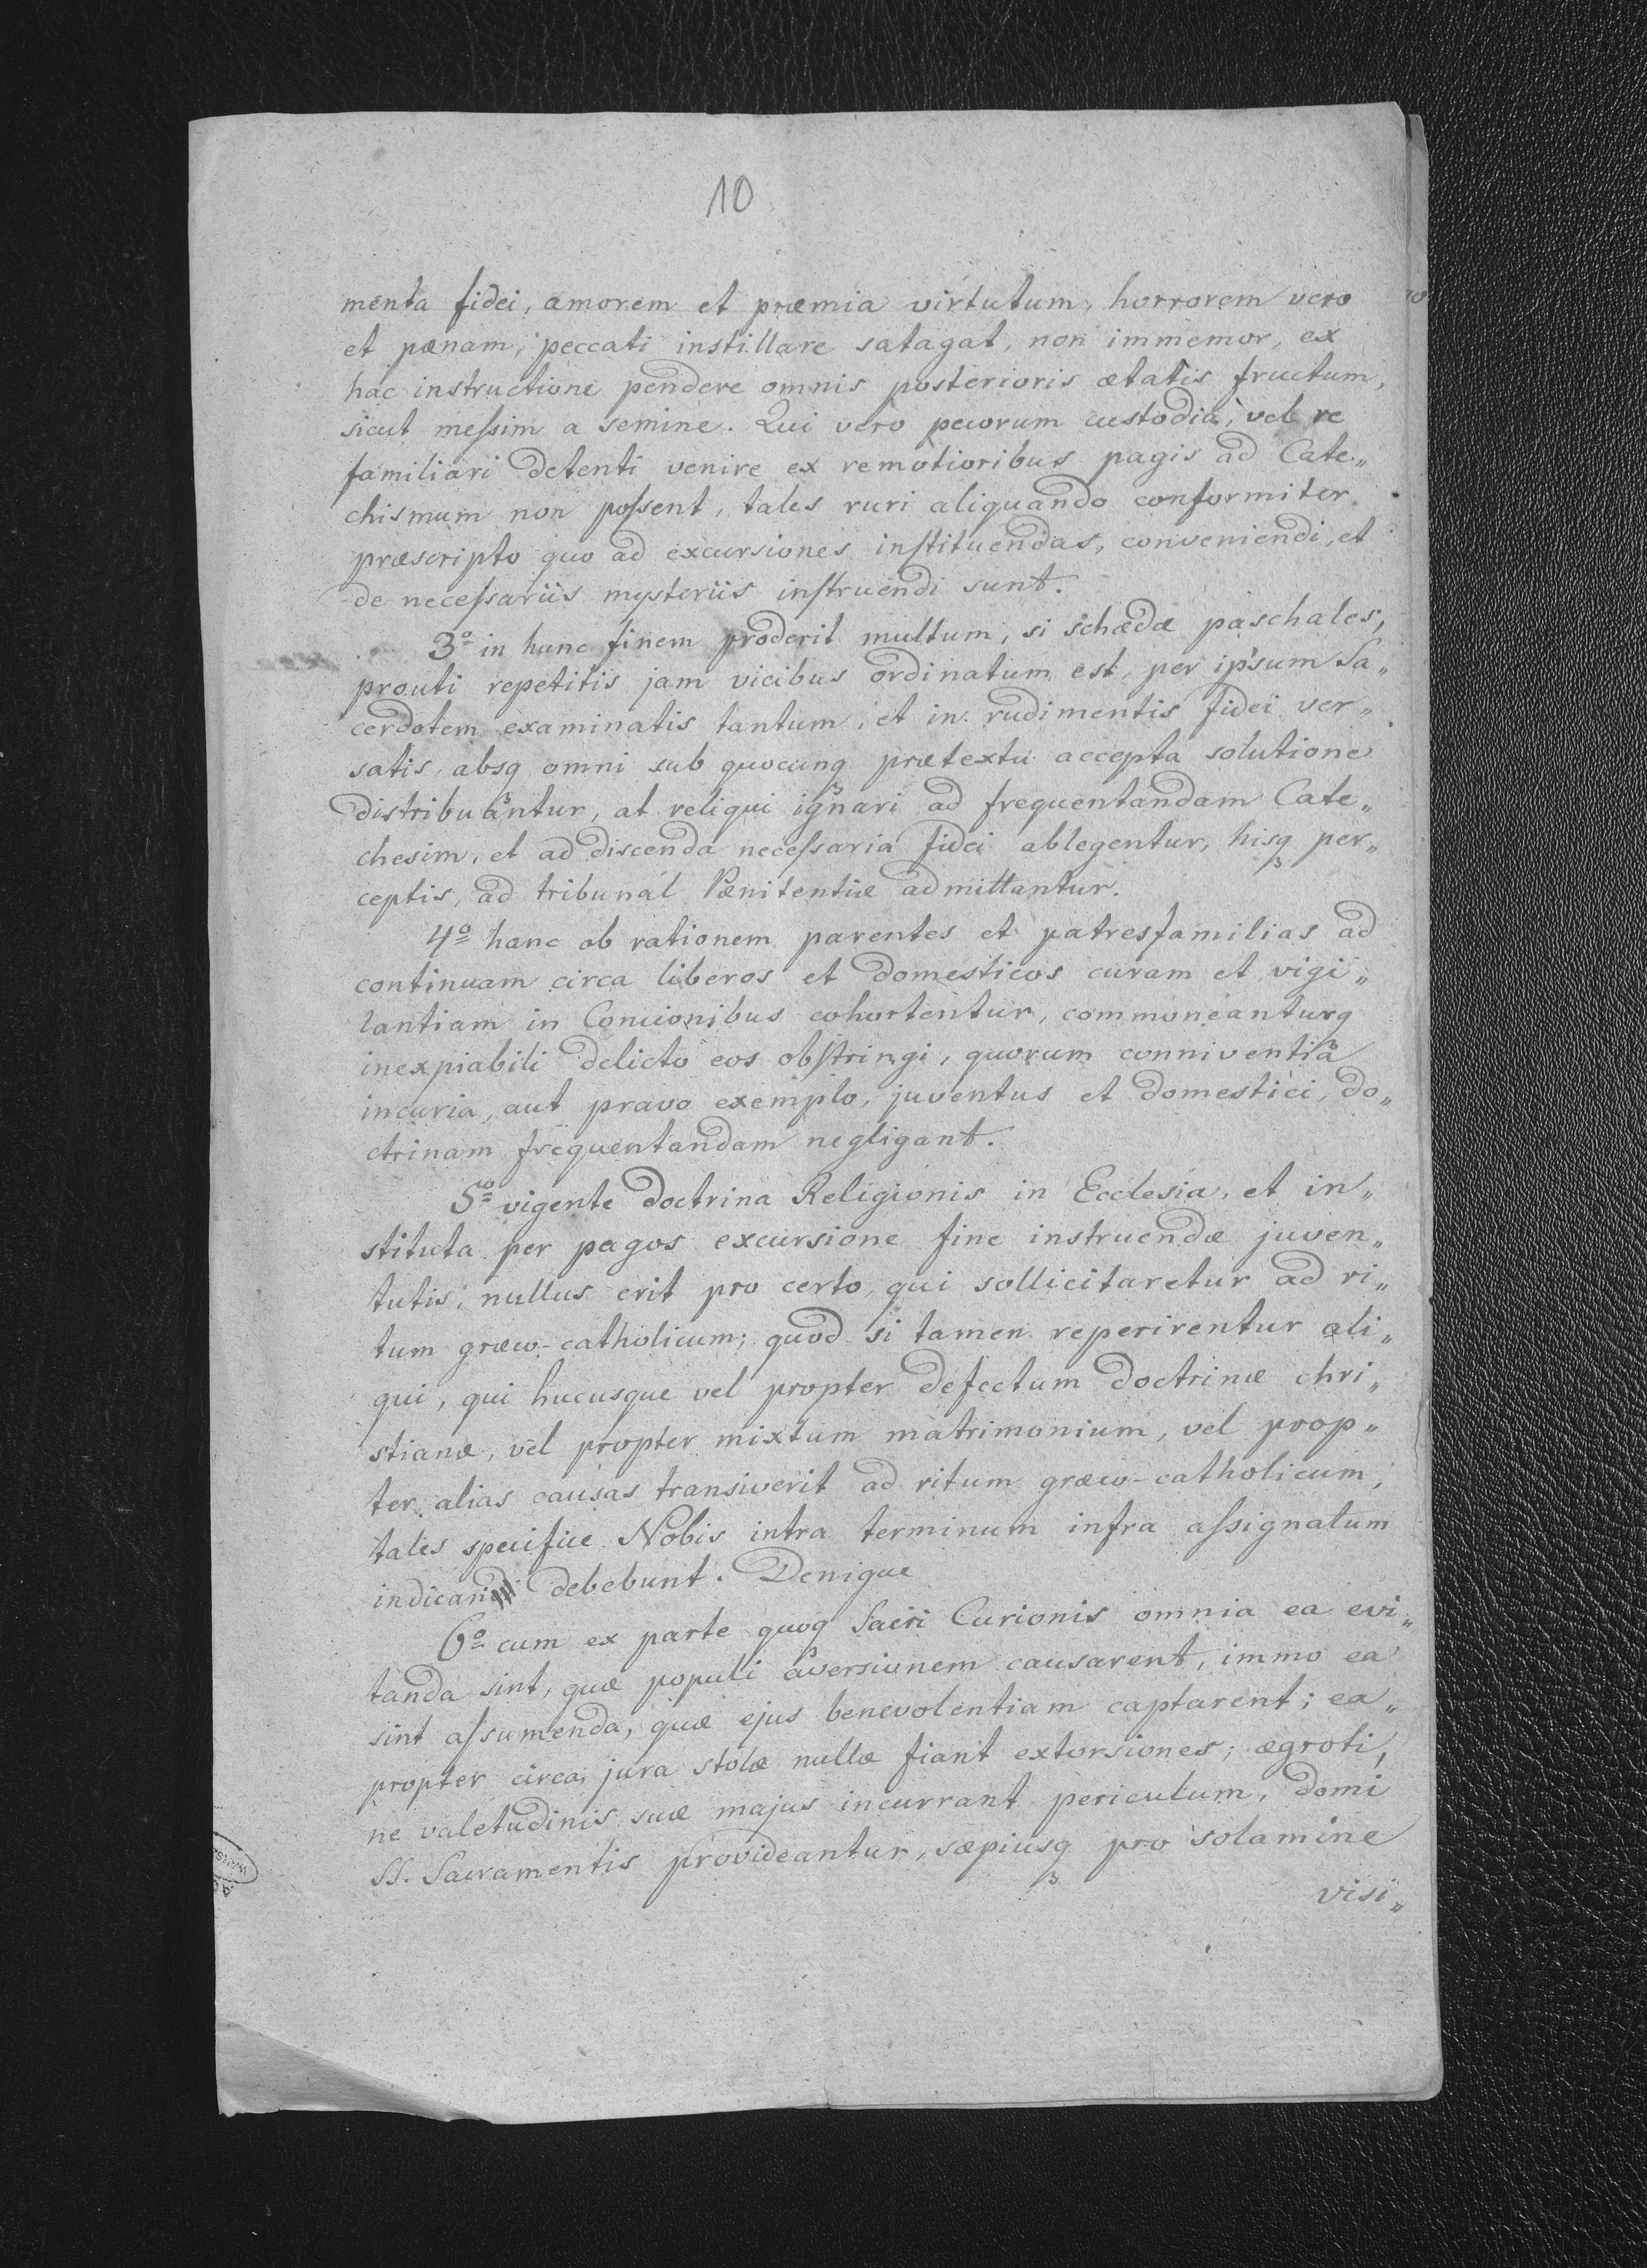 10
menta fidei, amorem et præmia virtutum, horrorem vero
et pænam, peccati instillare satagat, non immemor, ex
hac instructione pendere omnis posterioris ætatis fructum,
sicut meſsim a semine. Qui vero pecorum custodia, vel re
familiari detenti venire ex remotioribus pagis ad Cate„
chismum non poſsent, tales ruri aliquando conformiter
præscripto quo ad excursiones inſtituendas, conveniendi, et
de neceſsariis mysteriis inſtruendi sunt.
3º in hunc finem proderit multum, si schædæ paschales,
prouti repetitis jam vicibus ordinatum est, per ipsum Sa„
cerdotem examinatis tantum, et in rudimentis fidei ver„
satis, absq omni sub quocunq prætextu accepta solutione
distribuantur, at reliqui ignari ad frequentandam Cate„
chesim, et ad discenda neceſsaria fidei ablegentur, hisq per„
ceptis, ad tribunal Pænitentiæ admittantur.
4º hanc ob rationem parentes et patresfamilias ad
continuam circa liberos et domesticos curam et vigi„
lantiam in Concionibus cohortentur, commoneanturq
inexpiabili delicto eos obſtringi, quorum conniventiâ
incuria, aut pravo exemplo, juventus et domestici, do„
ctrinam frequentandam negligant.
5º vigente doctrina Religionis in Ecclesia, et in„
stituta per pagos excursione fine instruendæ juven„
tutis, nullus erit pro certo, qui sollicitaretur ad ri„
tum græco-catholicum; quod si tamen reperirentur ali„
qui, qui hucusque vel propter defectum doctrinæ chri„
stianæ, vel propter mixtum matrimonium, vel prop„
ter alias causas transiverit ad ritum græco-catholicum,
tales specifice Nobis intra terminum infra aſsignatum
indicandi debebunt. Denique
6º cum ex parte quoq Sacri Curionis omnia ea evi„
tanda sint, quæ populi aversionem causarent, immo ea
sint aſsumenda, quæ ejus benevolentiam captarent; ea„
propter circa jura stolæ nullæ fiant extorsiones; ægroti,
ne valetudinis suæ majus incurrant periculum, domi
SS. Sacramentis provideantur, sæpiusq pro solamine
visi„